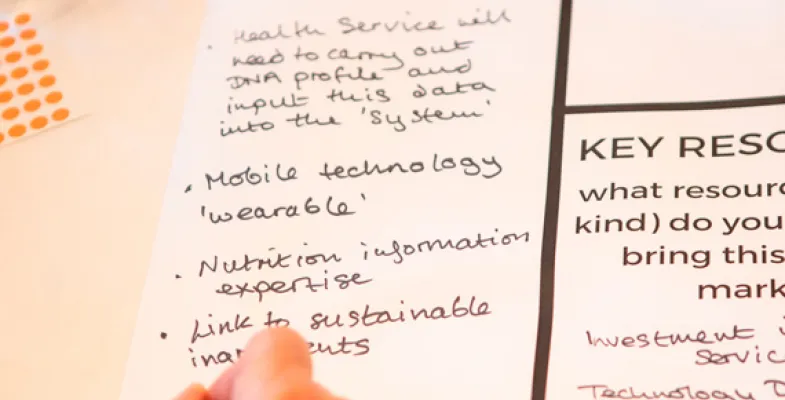 · Health Service will
need to carry out
DNA profile and
input this data
into the 'system'
· Mobile technology
'wearable'
· Nutrition information
expertise
· Link to sustainable
KEY
what
kind) do you
bring this
Investment
Technology